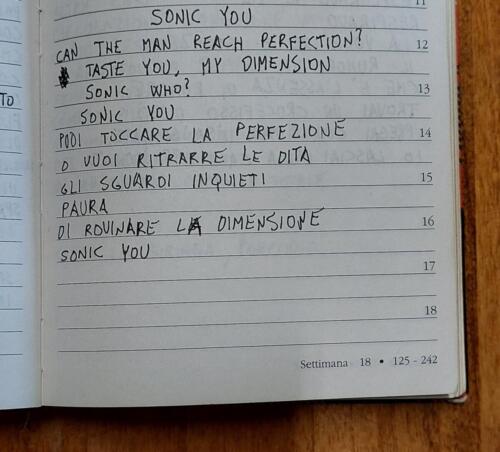 11
SONIC YOU
CAN THE MAN REACH PERFECTION?
12
TASTE YOU, MY DIMENSION
SONIC WHO?
13
SONIC YOU
PUOI TOCCARE LA PERFEZIONE
14
O VUOI RITRARRE LE DITA
GLI SGUARDI INQUIETI
15
PAURA
DI ROVINARE LA DIMENSIONE
16
SONIC YOU
17
18
Settimana 18 • 125 - 242
TO